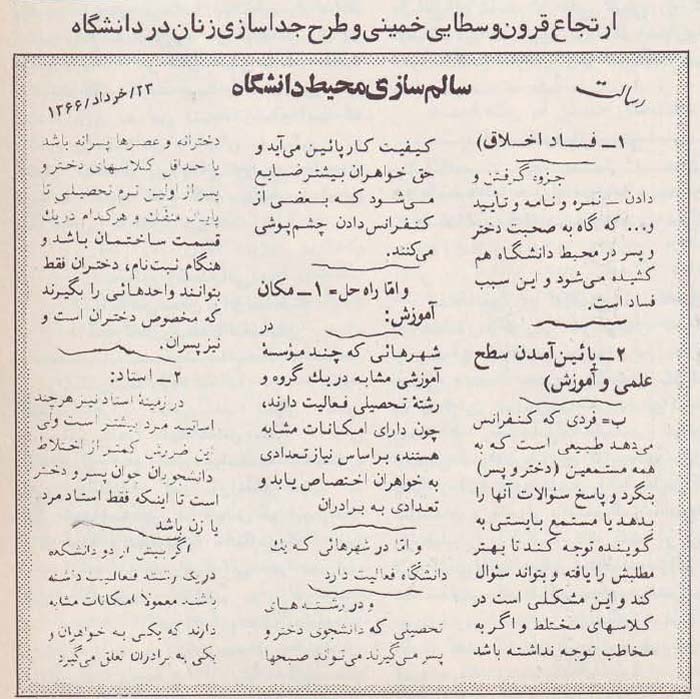 ارتجاع قرون وسطایی خمینی و طرح جداسازی زنان در دانشگاه
رسالت
سالم سازی محیط دانشگاه
۲۳/خرداد/۱۳۶۶
۱ــ فساد اخلاق)
جزوه گرفتن و
دادن ــ نمره و نامه و تأیید
و... که گاه به صحبت دختر
و پسر در محیط دانشگاه هم
کشیده می‌شود و این سبب
فساد است.
۲ــ پائین‌آمدن سطح
علمی و آموزش)
ب= فردی که کنفرانس
می‌دهد طبیعی است که به
همه مستمعین (دختر و پسر)
بنگرد و پاسخ سئوالات آنها را
بدهد یا مستمع بایستی به
گوینده توجه کند تا بهتر
مطلبش را یافته و بتواند سئوال
کند و این مشکلی است در
کلاسهای مختلط و اگر به
مخاطب توجه نداشته باشد
کیفیت کار پائین می‌آید و
حق خواهران بیشتر ضایع
می‌شود که بعضی از
کنفرانس دادن چشم‌پوشی
می‌کنند.
و امّا راه حل= ۱ــ مکان
آموزش:
در
شهرهائی که چند مؤسسهٔ
آموزشی مشابه در یك گروه و
رشتهٔ تحصیلی فعالیت دارند،
چون دارای امکانات مشابه
هستند، براساس نیاز تعدادی
به خواهران اختصاص یابد و
تعدادی به برادران
و امّا در شهرهائی که یك
دانشگاه فعالیت دارد
و در رشته‌های
تحصیلی که دانشجوی دختر و
پسر می‌گیرند می‌تواند صبحها
دخترانه و عصرها پسرانه باشد
یا حداقل کلاسهای دختر و
پسر از اولین ترم تحصیلی تا
پایان منفك و هرکدام در یك
قسمت ساختمان باشد و
هنگام ثبت‌نام، دختران فقط
بتوانند واحدهائی را بگیرند
که مخصوص دختران است و
نیز پسران.
۲ــ استاد:
در زمینهٔ استاد نیز هرچند
اساتید مرد بیشتر است ولی
این ضررش کمتر از اختلاط
دانشجویان جوان پسر و دختر
است تا اینکه فقط استاد مرد.
یا زن باشد
اگر بیش از دو دانشکده
در یك رشته فعالیت داشته
باشند معمولاً امکانات مشابه
دارند که یکی به خواهران و
یکی به برادران تعلق می‌گیرد